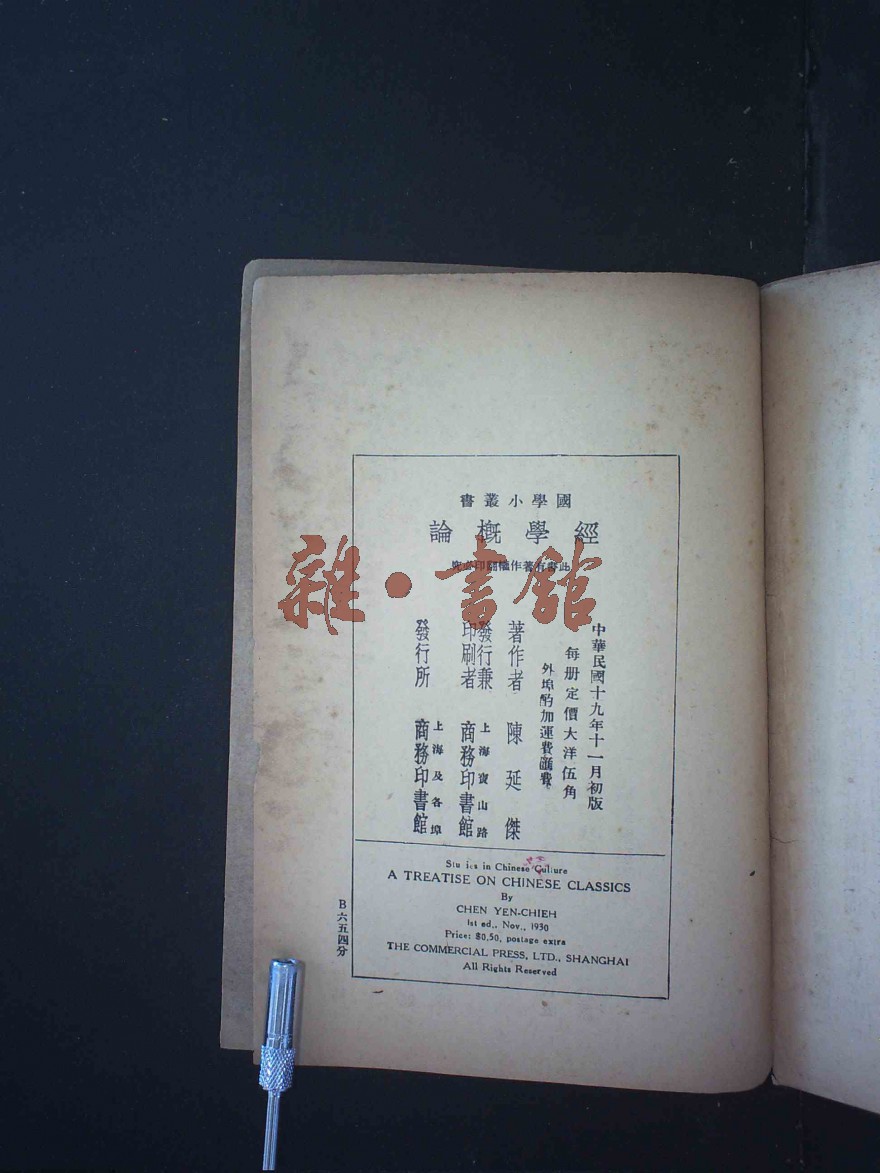 國學小叢書
經學概論
此書有著作權翻印必究
中華民國十九年十一月初版
每册定價大洋伍角
外埠酌加運費匯費
著作者 陳延傑
發行兼印刷者 上海寶山路 商務印書館
發行所 上海及各埠 商務印書館
Studies in Chinese Culture
A TREATISE ON CHINESE CLASSICS
By
CHEN YEN-CHIEH
1st ed., Nov., 1930
Price: $0.50, postage extra
THE COMMERCIAL PRESS, LTD., SHANGHAI
All Rights Reserved
B六五四分
雜·書館